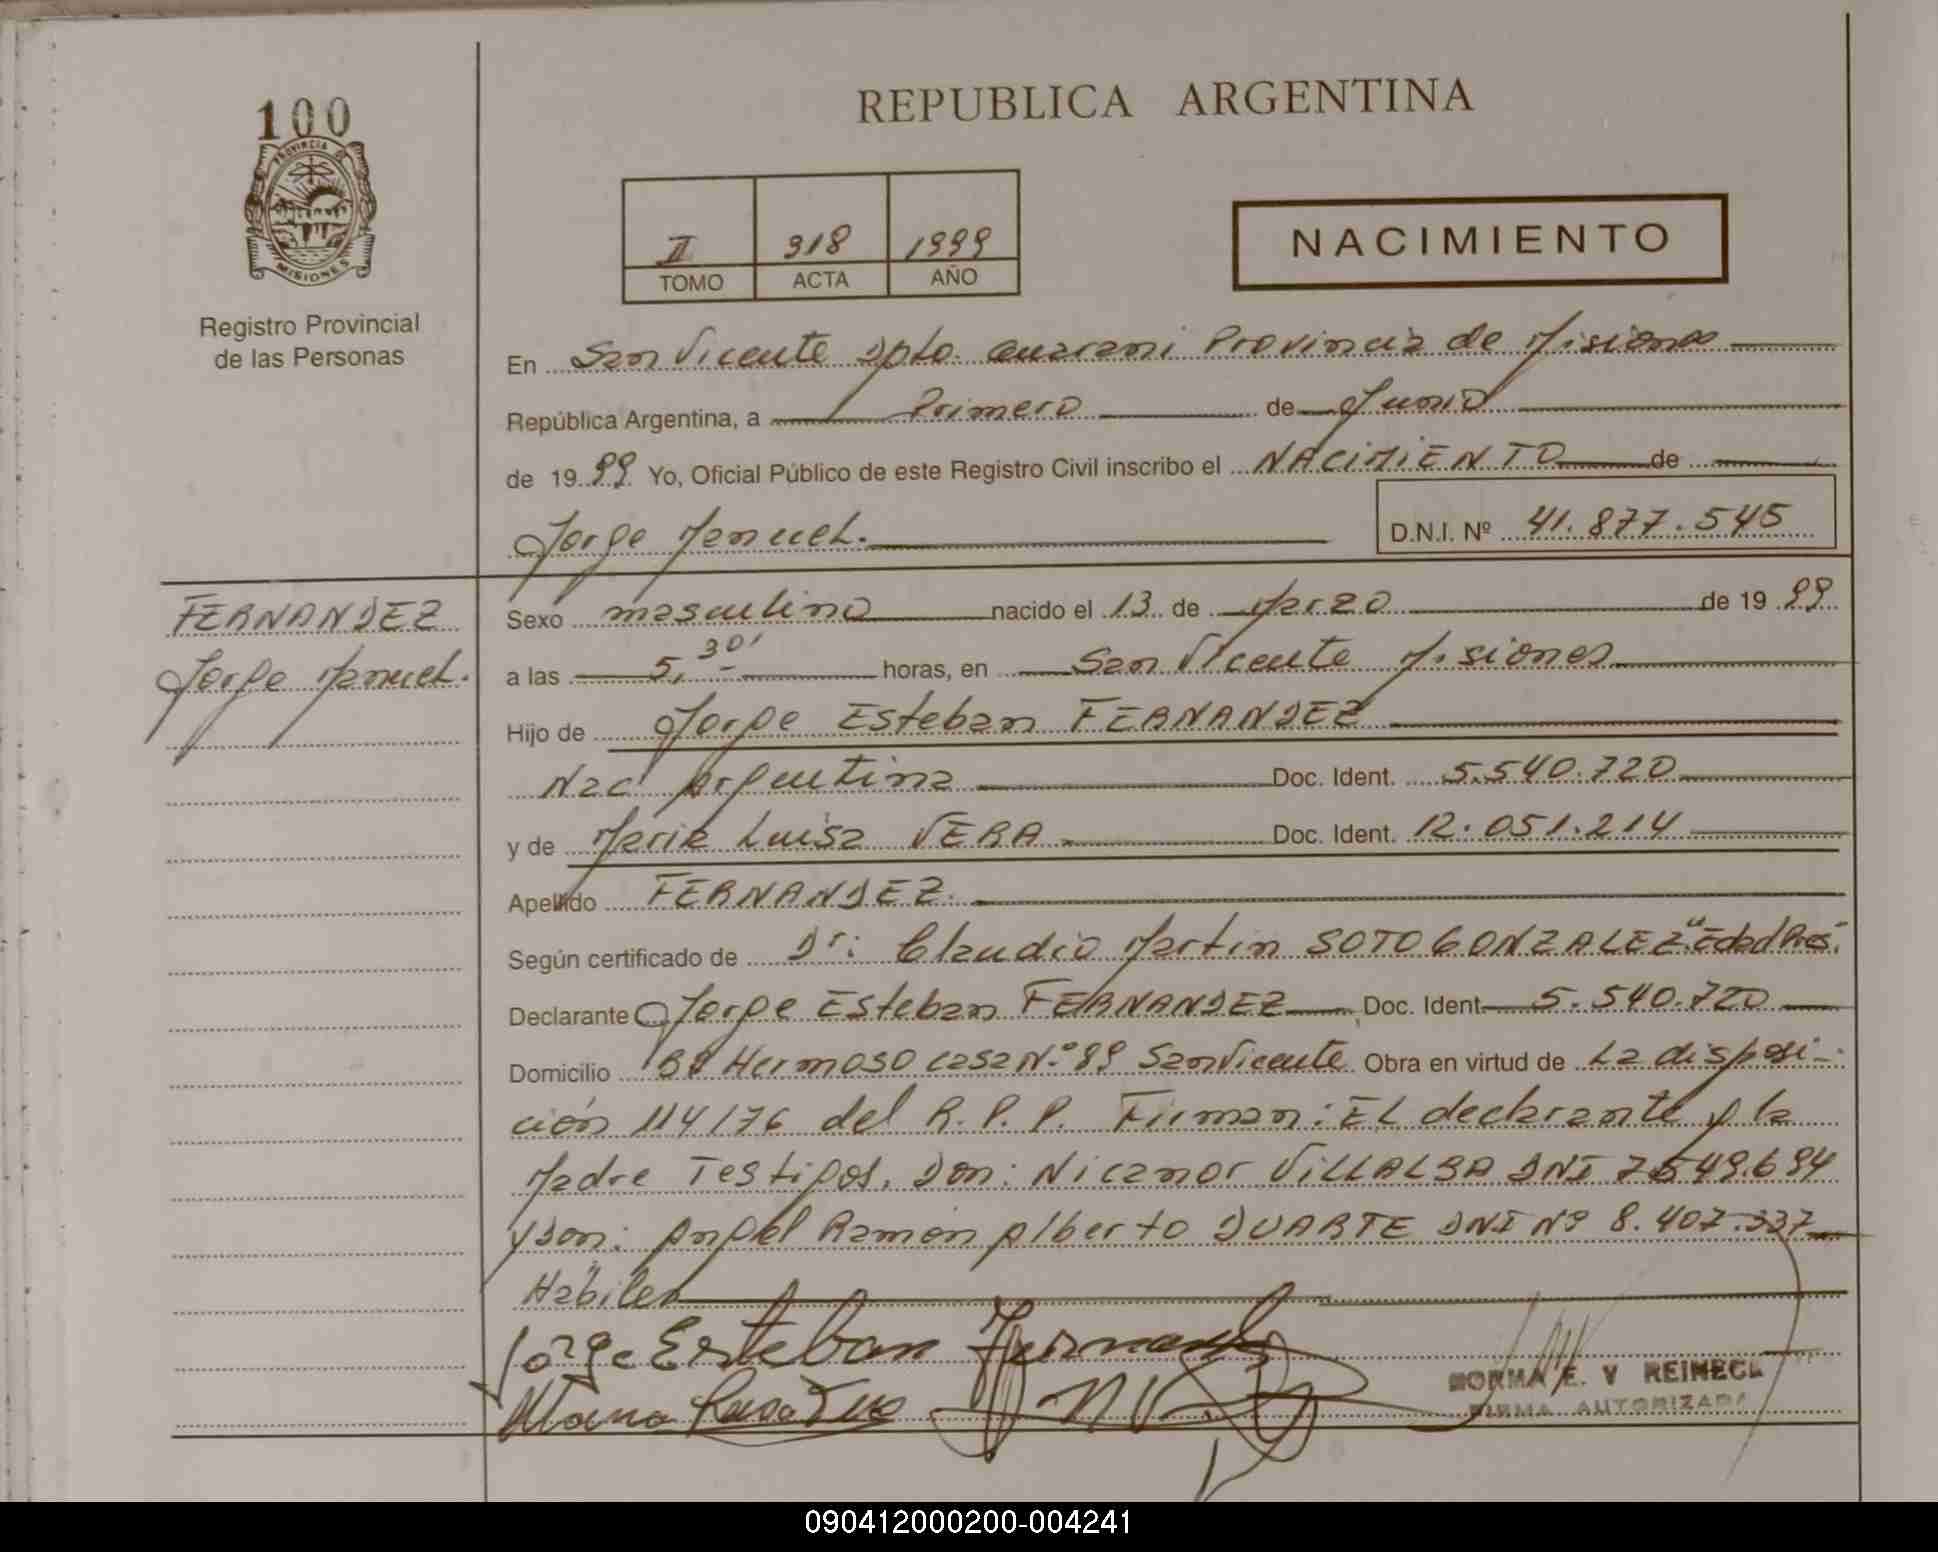 100
PROVINCIA DE
MISIONES
Registro Provincial
de las Personas
REPUBLICA ARGENTINA
II 318 1999
TOMO ACTA AÑO
NACIMIENTO
En San Vicente Dpto. Guarani Provincia de Misiones
República Argentina, a Primero de Junio
de 1999 Yo, Oficial Público de este Registro Civil inscribo el NACIMIENTO de
Jorge Manuel.
D.N.I. Nº 41.877.545
FERNANDEZ
Jorge Manuel.
Sexo masculino nacido el 13 de Marzo de 1999
a las 5,30' horas, en San Vicente Misiones
Hijo de Jorge Esteban FERNANDEZ
Nac. Argentina Doc. Ident. 5.540.720
y de Maria Luisa VERA Doc. Ident. 12.051.214
Apellido FERNANDEZ.
Según certificado de Dr: Claudio Martin SOTO GONZALEZ "Edad Pres."
Declarante Jorge Esteban FERNANDEZ Doc. Ident 5.540.720
Domicilio Bº Hermoso casa N.º 89 San Vicente Obra en virtud de La disposi-
ción 114/76 del R.P.P. Firman: El declarante y la
Madre Testigos, Don: Nicanor VILLALBA DNI 7.549.694
y Don: Angel Ramón Alberto DUARTE DNI Nº 8.407.337
Hábiles
Jorge Esteban Fernandez
NORMA E. V REINECK
FIRMA AUTORIZADA
090412000200-004241